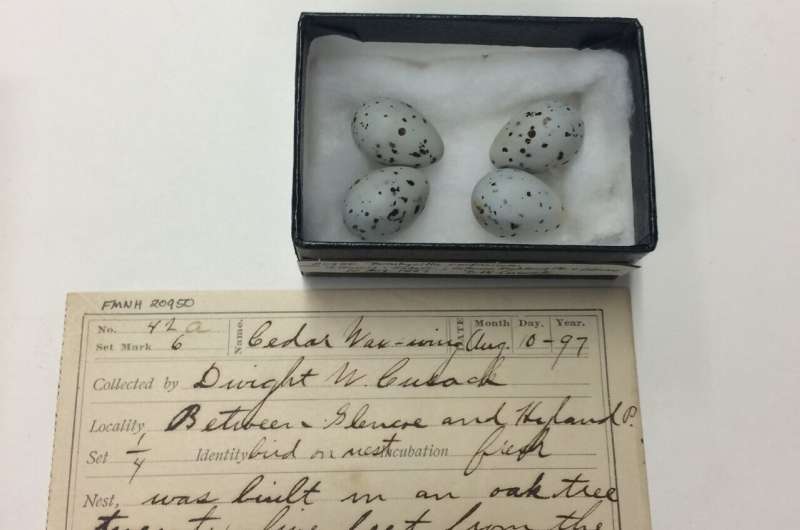 FMNH 20950
No. 42 a Name. Cedar Wax-wing DATE Month Day. Year.
Set Mark 6 Aug. 10-97
Collected by Dwight W. Cusack
Locality Between Glencoe and Hyland P.
Set 1/4 Identity bird on nest Incubation fresh
Nest, was built in an oak tree
twenty five feet from the